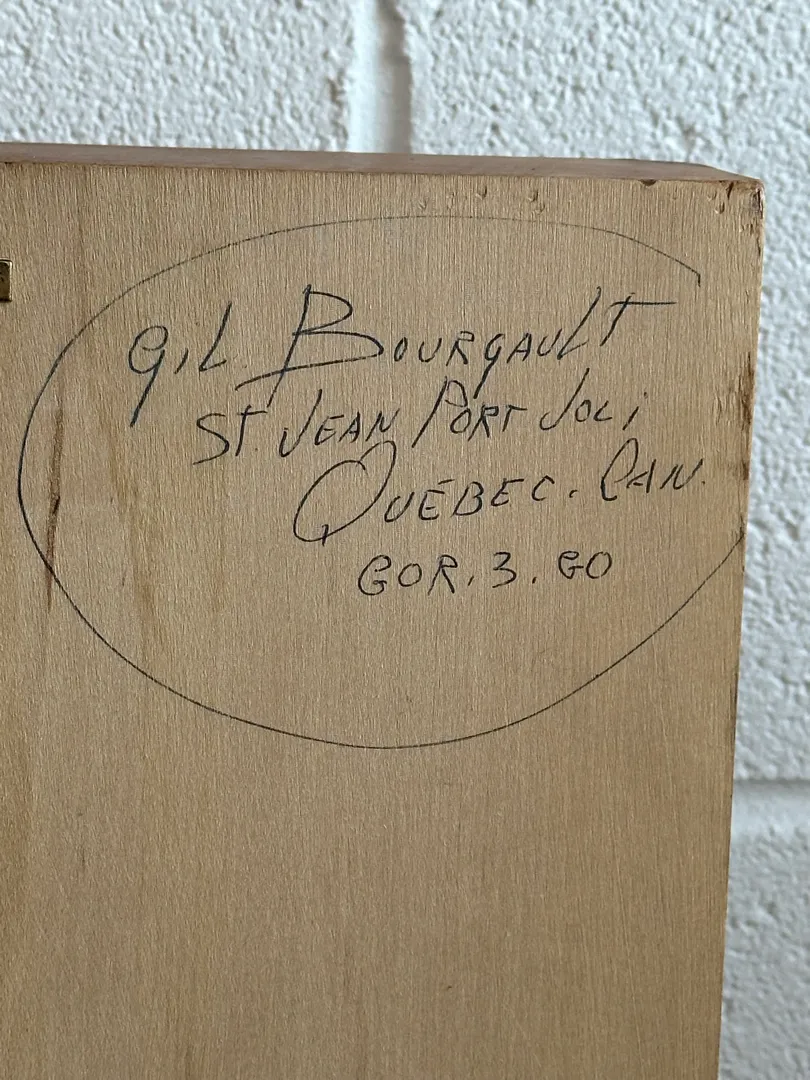 Gil. Bourgault
St. Jean Port Joli
Québec. Can.
GOR. 3. GO